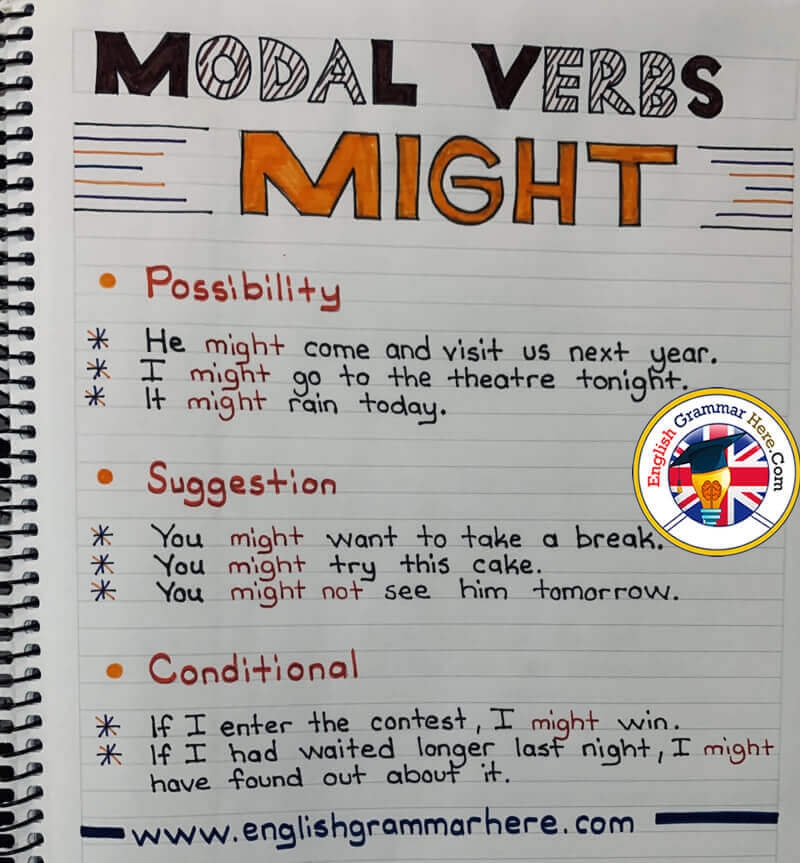 MODAL VERBS
MIGHT
• Possibility
* He might come and visit us next year.
* I might go to the theatre tonight.
* It might rain today.
English Grammar Here.Com
• Suggestion
* You might want to take a break.
* You might try this cake.
* You might not see him tomorrow.
• Conditional
* If I enter the contest, I might win.
* If I had waited longer last night, I might
have found out about it.
www.englishgrammarhere.com